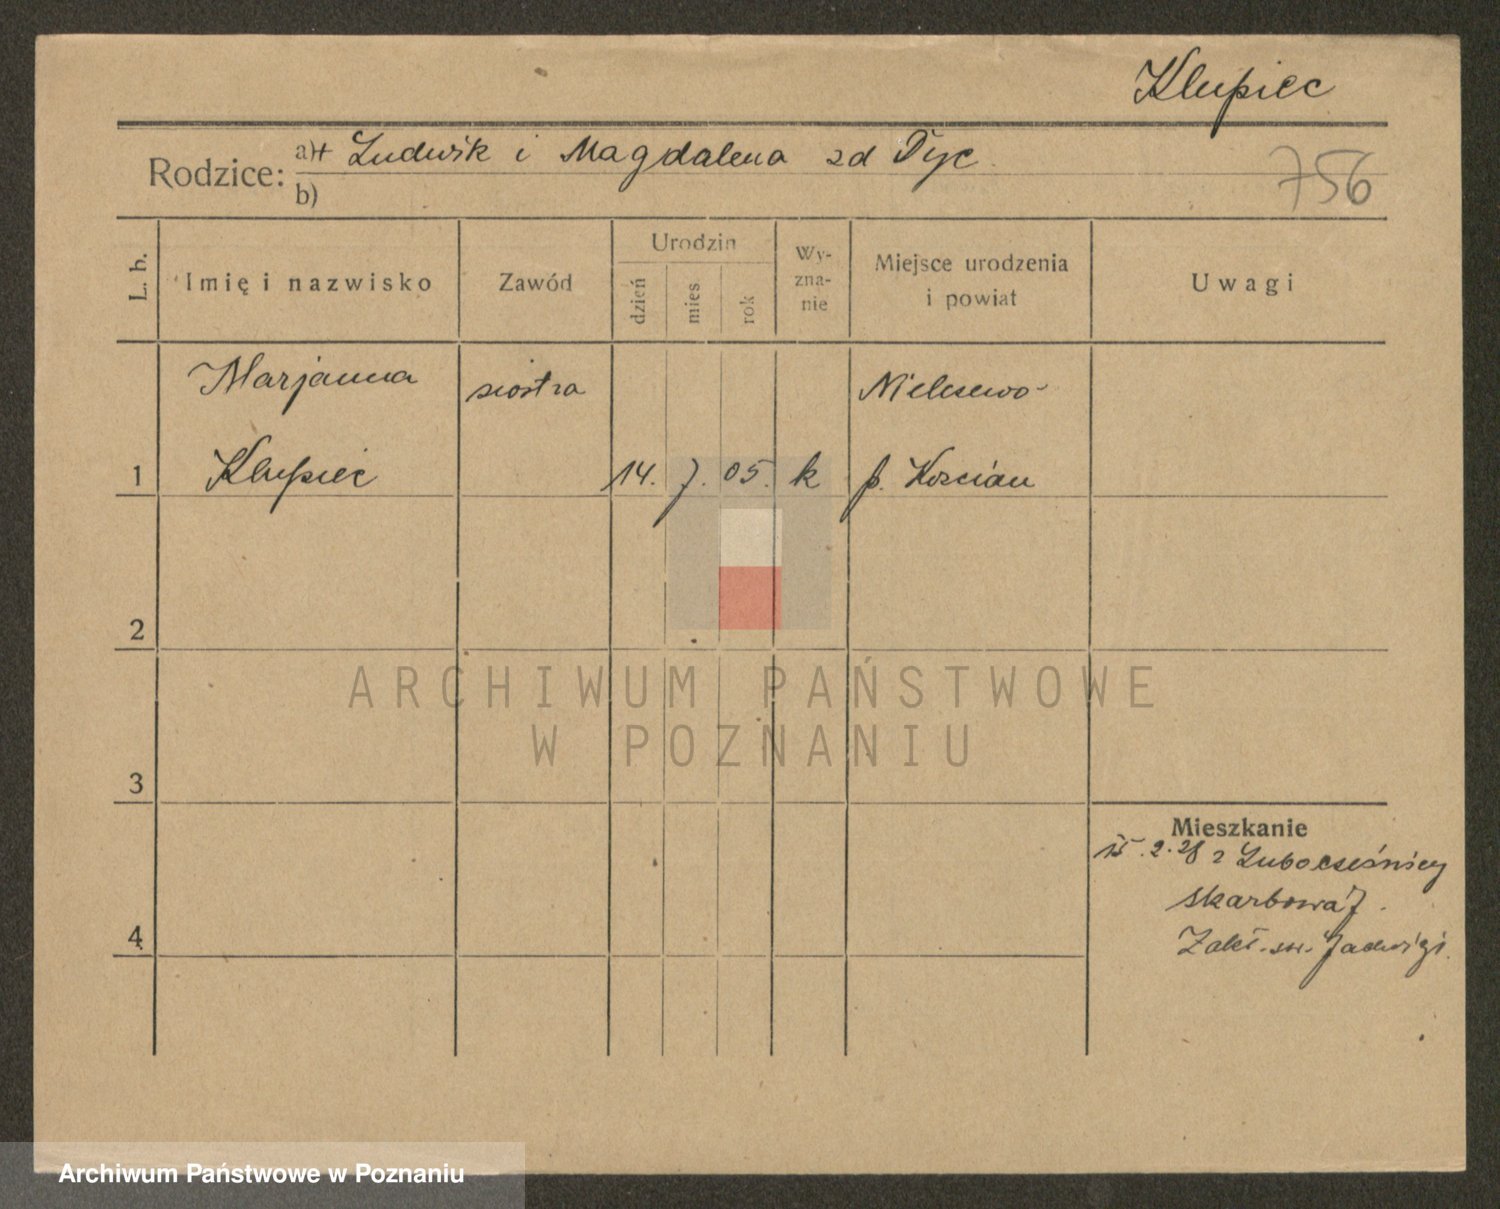 Klupiec
Rodzice: a)+ Ludwik i Magdalena zd Tyc.
b)
756
L. b.
Imię i nazwisko
Zawód
Urodzin
dzień
mies.
rok
Wy-
zna-
nie
Miejsce urodzenia
i powiat
Uwagi
Marjanna siostra
1 Klupiec 14. 7. 05. k p. Kościan
2
3
4
Mieszkanie
15.2.28 z
skarbowa 7.
Zakł. św. Jadwigi.
ARCHIWUM PAŃSTWOWE
W POZNANIU
Archiwum Państwowe w Poznaniu